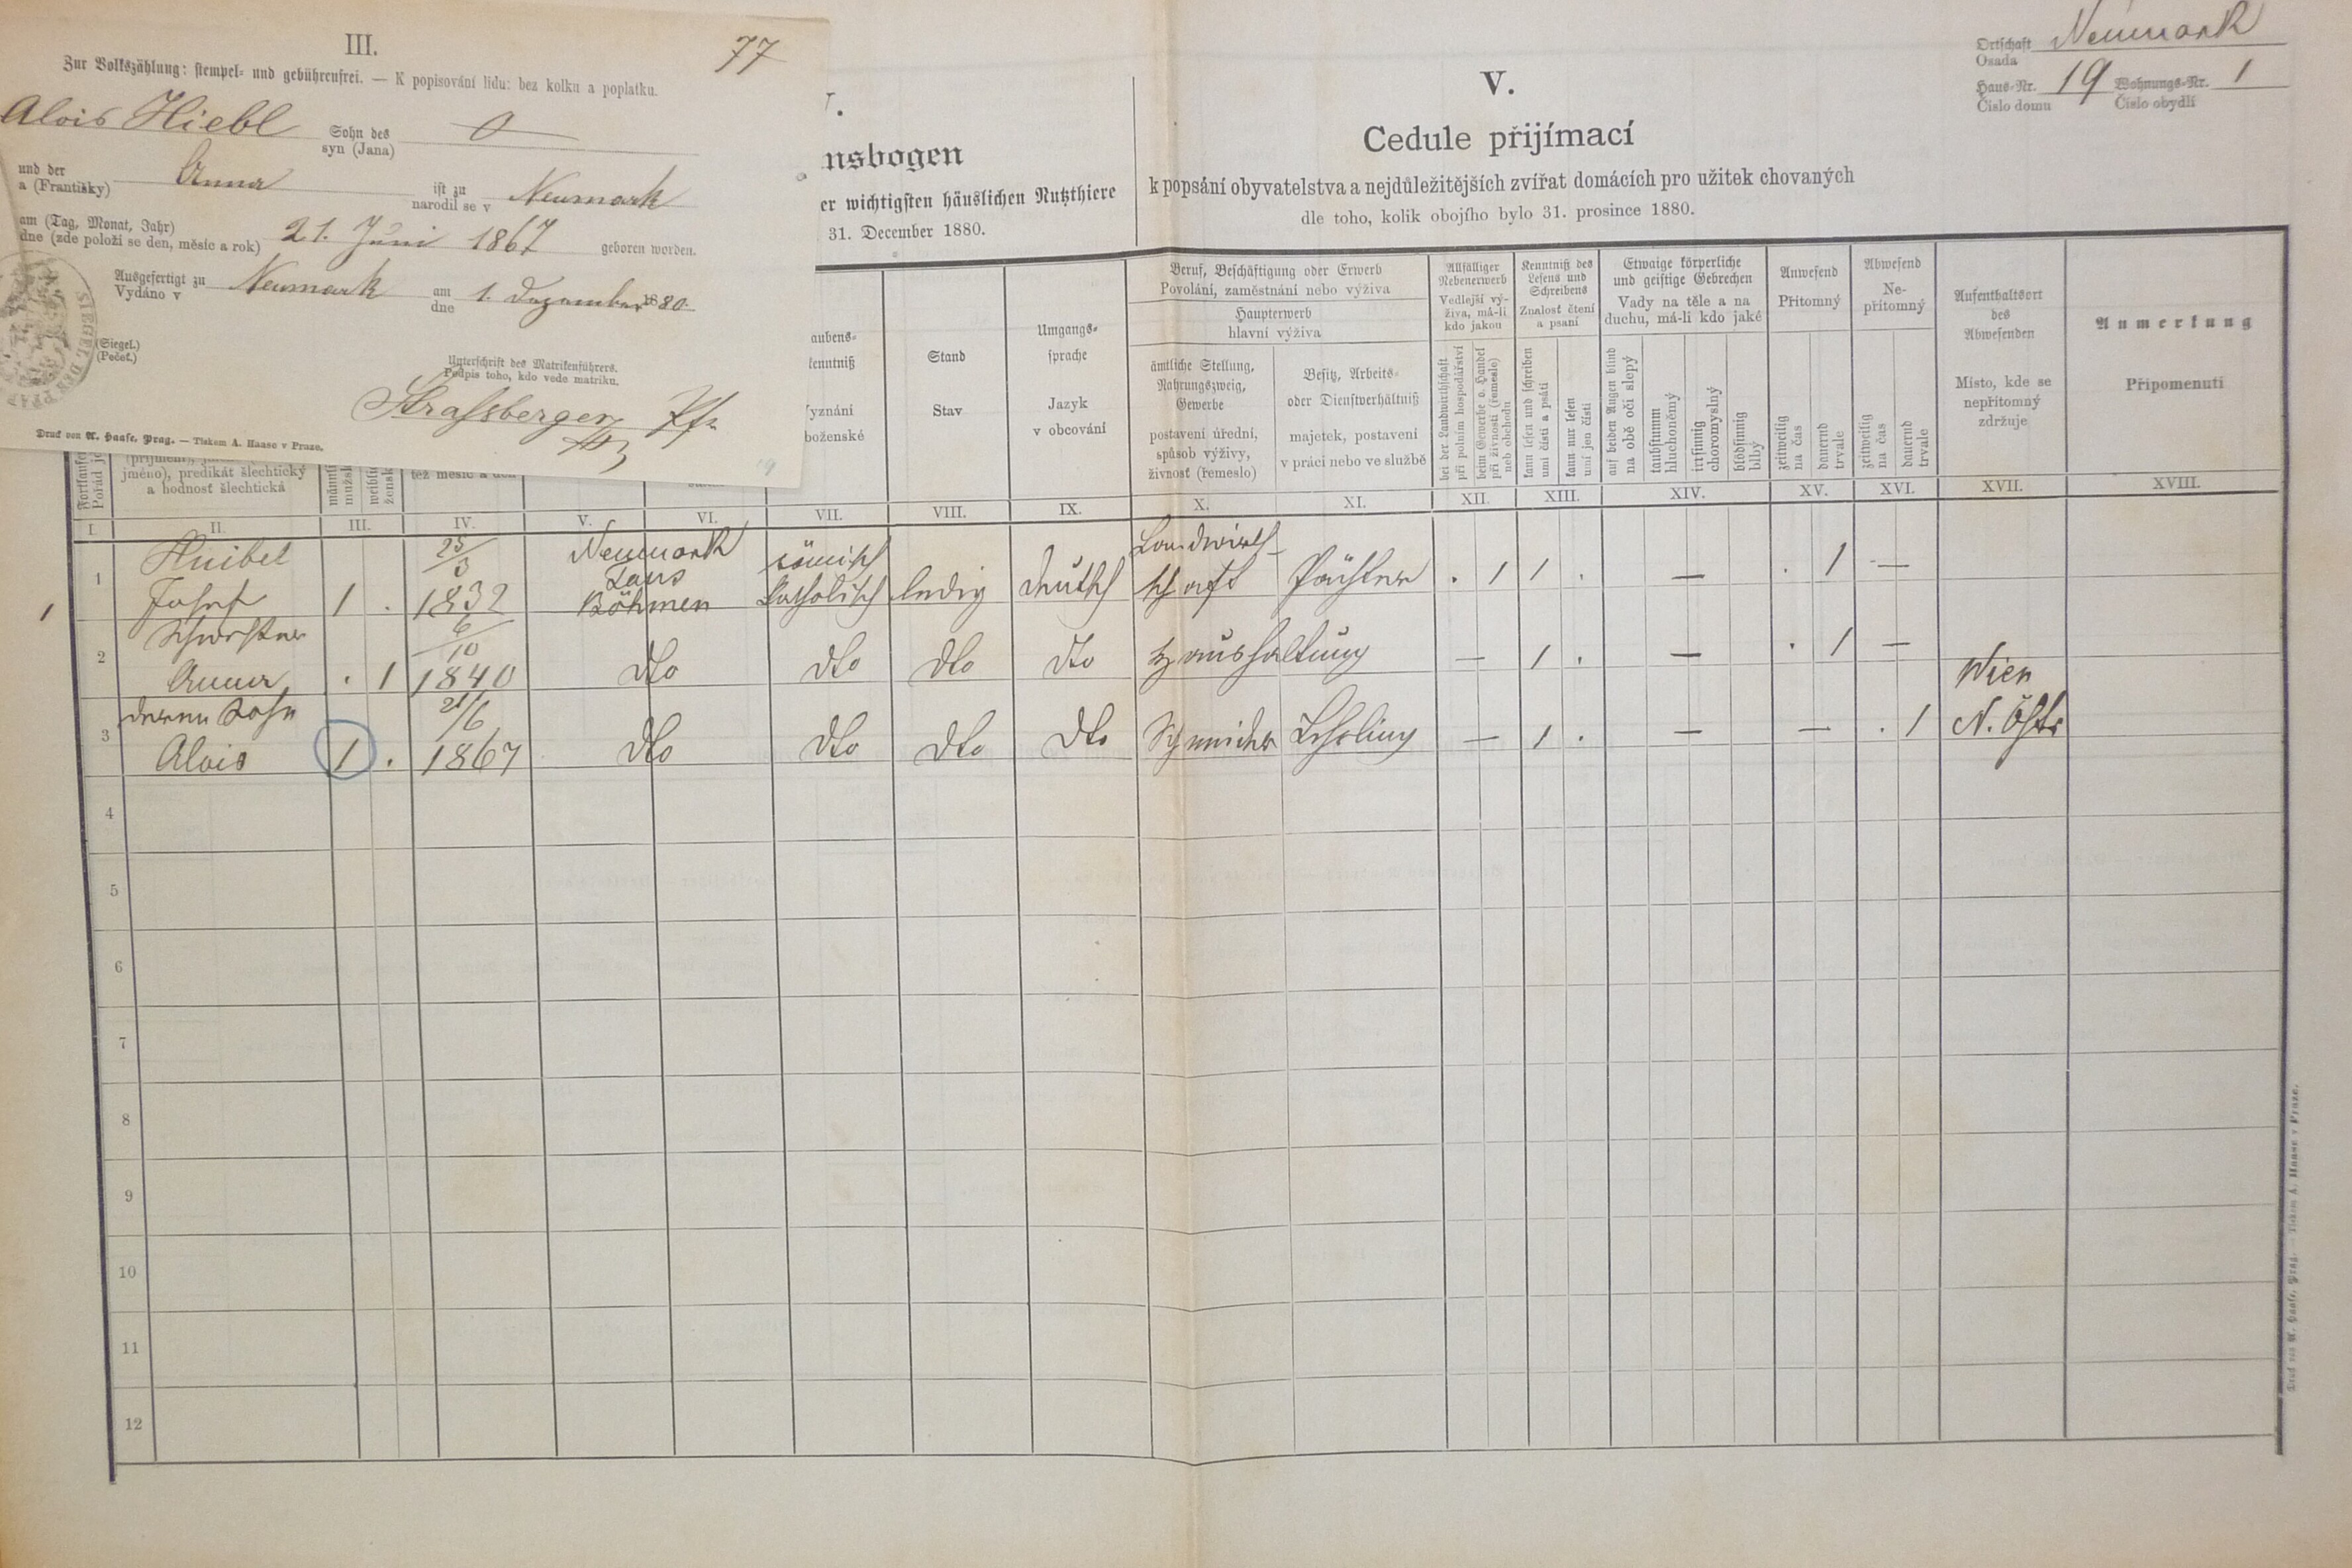 III.
77
Zur Volkszählung: stempel- und gebührenfrei. — K popisování lidu: bez kolku a poplatku.
Alois Hiebl Sohn des 0
syn (Jana)
und der Anna ist zu Neumark
a (Františky) narodil se v
am (Tag, Monat, Jahr) 21. Juni 1867 geboren worden.
dne (zde položí se den, měsíc a rok)
Ausgefertigt zu Neumark am 1. Dezember 1880.
Vydáno v dne
(Siegel.)
(Pečeť.)
Unterschrift des Matrikenführers.
Podpis toho, kdo vede matriku.
Strassberger
Druck von A. Haase, Prag. — Tiskem A. Haase v Praze.
Ortschaft Neumark
Osada
Haus-Nr. 19 Wohnungs-Nr. 1
Číslo domu Číslo obydlí
nsbogen
er wichtigsten häuslichen Nutzthiere
31. December 1880.
V.
Cedule přijímací
k popsání obyvatelstva a nejdůležitějších zvířat domácích pro užitek chovaných
dle toho, kolik obojího bylo 31. prosince 1880.
jméno), predikát šlechtický
a hodnosť šlechtická
aubens-
kenntniß
yznání
boženské
Stand
Stav
Umgangs-
sprache
Jazyk
v obcování
Beruf, Beschäftigung oder Erwerb
Povolání, zaměstnání nebo výživa
Haupterwerb
hlavní výživa
ämtliche Stellung,
Nahrungszweig,
Gewerbe
postavení úřední,
spůsob výživy,
živnosť (řemeslo)
Besitz, Arbeits-
oder Dienstverhältniß
majetek, postavení
v práci nebo ve službě
Allfälliger
Nebenerwerb
Vedlejší vý-
živa, má-li
kdo jakou
bei der Landwirthschaft
při polním hospodářství
beim Gewerbe o. Handel
při živnosti (řemesle)
neb obchodu
Kenntniß des
Lesens und
Schreibens
Znalosť čtení
a psaní
kann lesen und schreiben
umí čísti a psáti
kann nur lesen
umí jen čísti
Etwaige körperliche
und geistige Gebrechen
Vady na těle a na
duchu, má-li kdo jaké
auf beiden Augen blind
na obě oči slepý
taubstumm
hluchoněmý
irrsinnig
choromyslný
blödsinnig
blbý
Anwesend
Přítomný
zeitweilig
na čas
dauernd
trvale
Abwesend
Ne-
přítomný
zeitweilig
na čas
dauernd
trvale
Aufenthaltsort
des
Abwesenden
Místo, kde se
nepřítomný
zdržuje
Anmerkung
Připomenutí
I. II. III. IV. V. VI. VII. VIII. IX. X. XI. XII. XIII. XIV. XV. XVI. XVII. XVIII.
1 Josef 1 . 25/3 1832 Neumark Taus Böhmen römisch katholisch ledig deutsch Landwirth-schaft Pächter . 1 1 . — . 1 —
2 Schwester Anna . 1 6/10 1840 dto dto dto dto Haushaltung — 1 . — . 1 —
3 deren Sohn Alois 1 . 21/6 1867 dto dto dto dto Schneider Lehrling — 1 . — — . 1 Wien N. Östr
4
5
6
7
8
9
10
11
12
Druck von A. Haase, Prag. — Tiskem A. Haase v Praze.